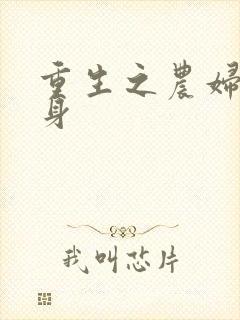 重生之農婦
身
我叫芯片